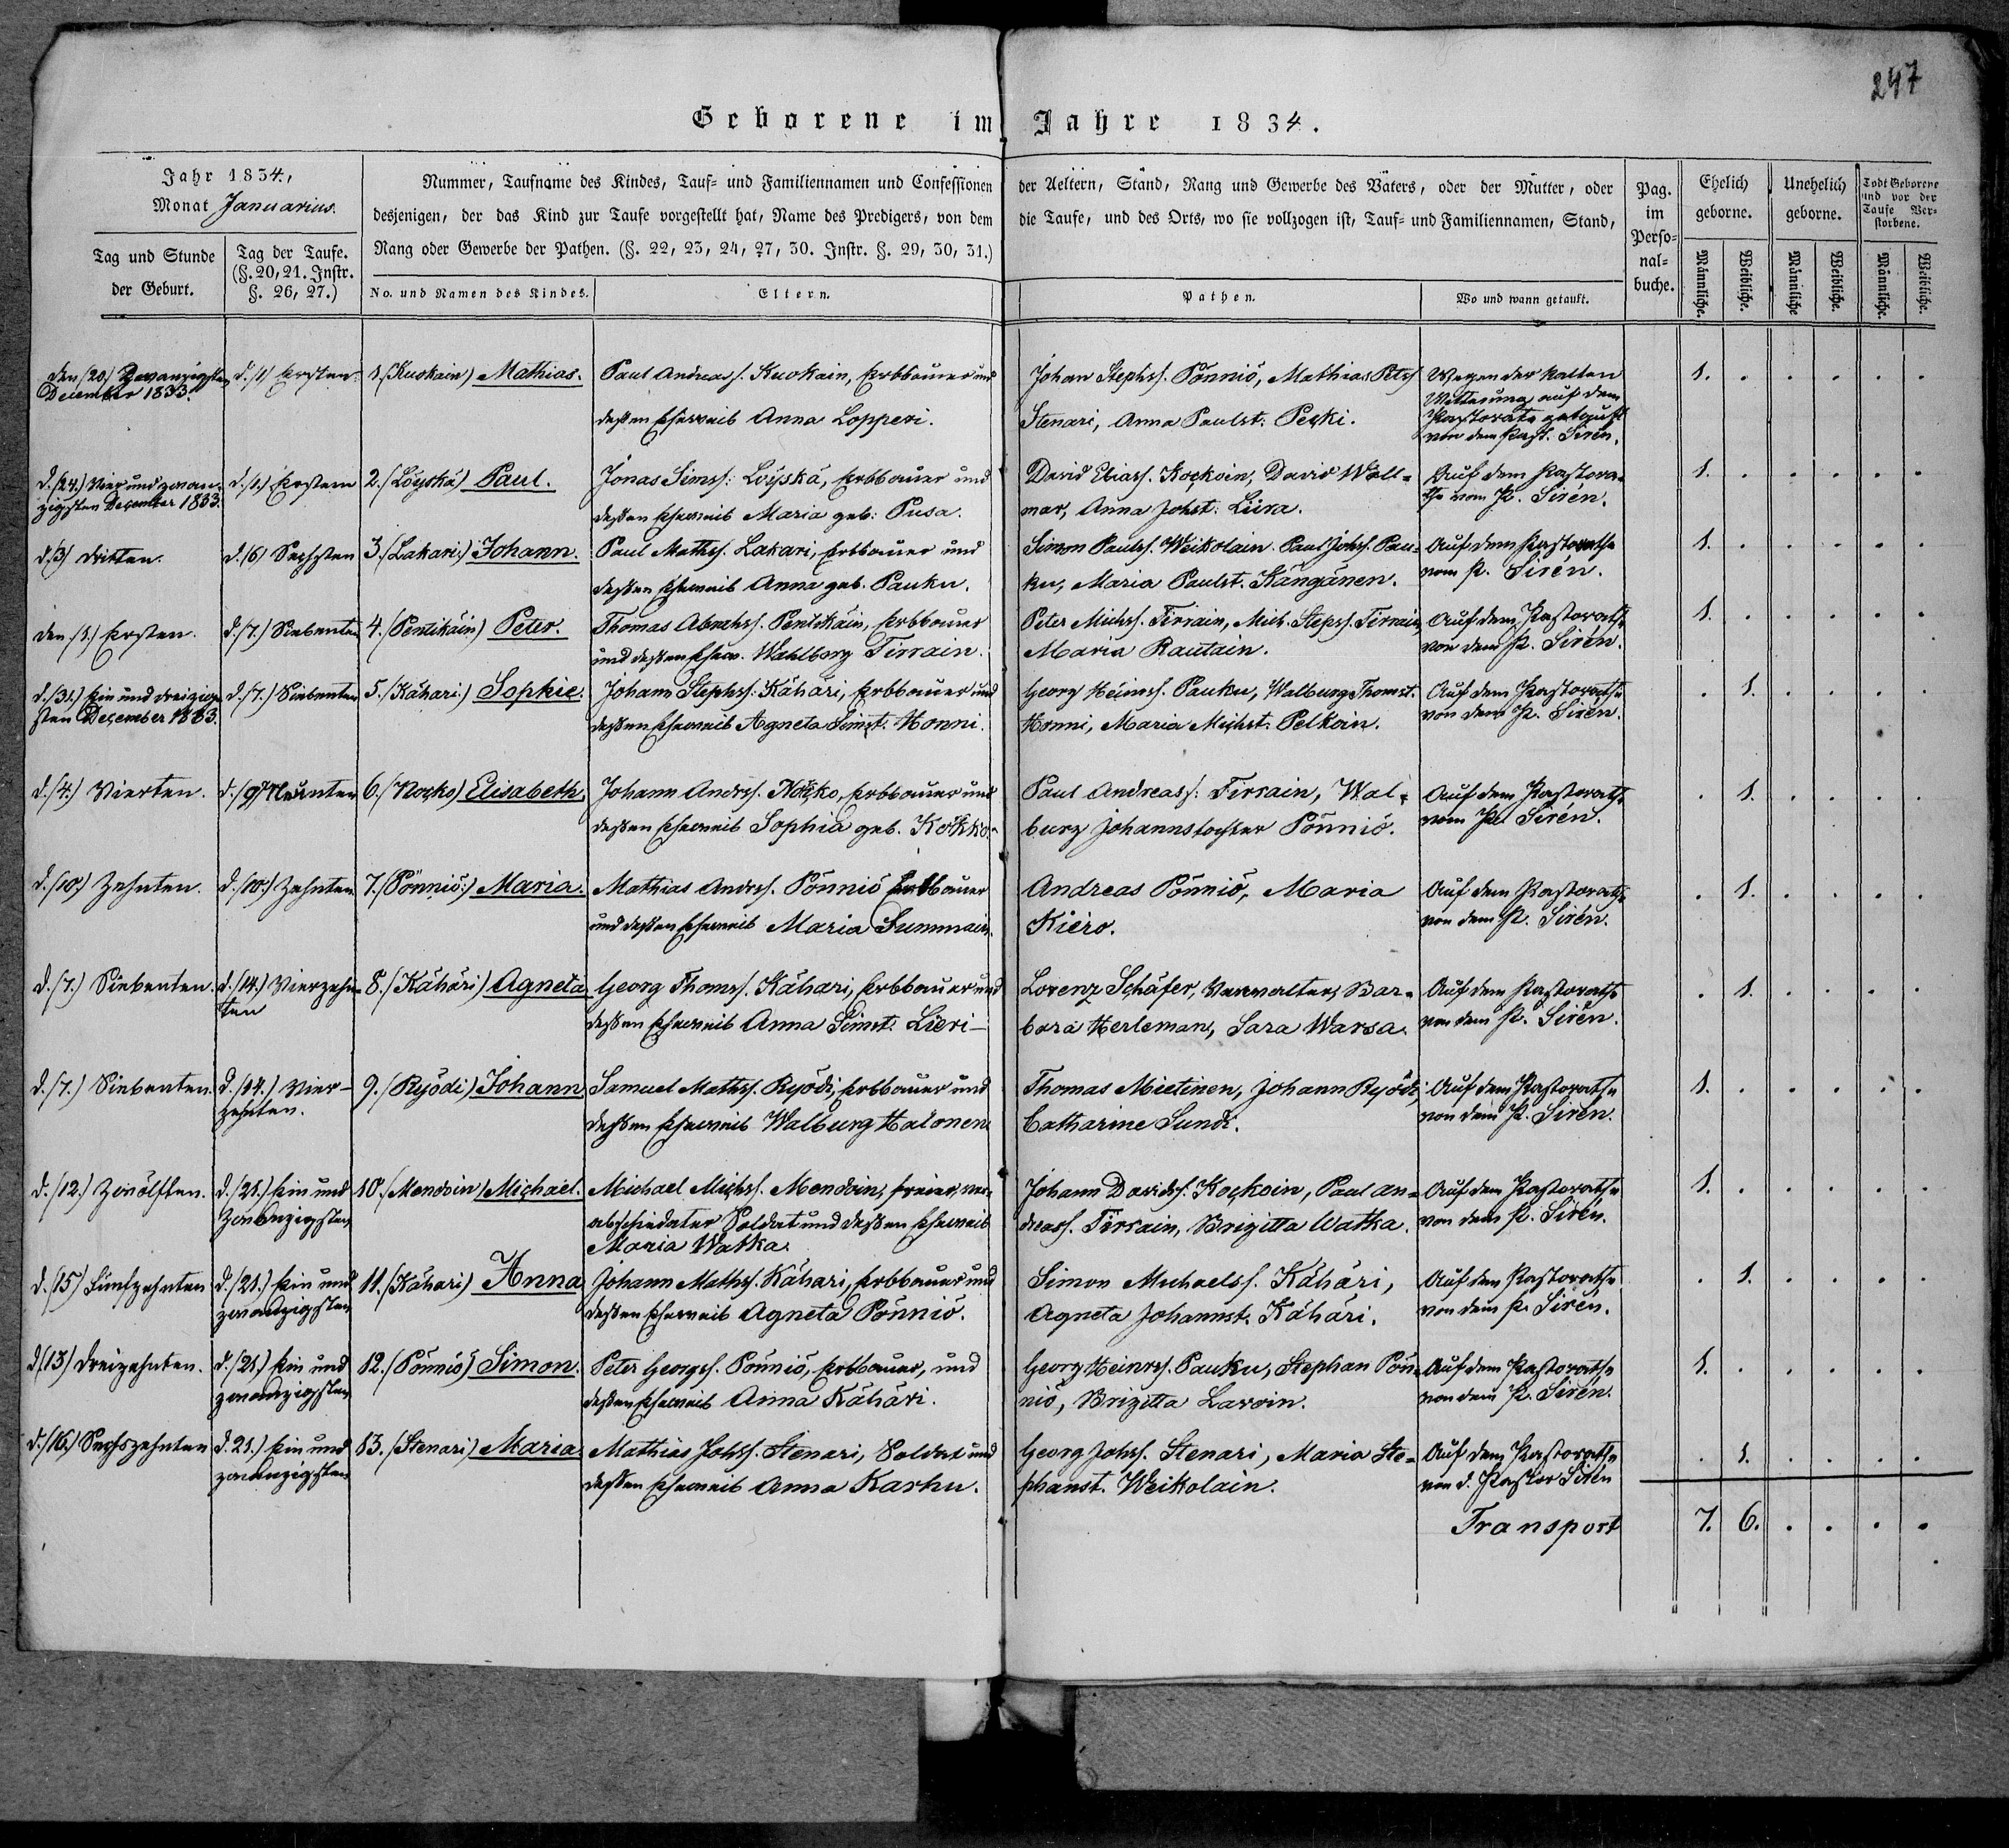 247
Geborene im Jahre 1834.
Jahr 1834,
Monat Januarius.
Tag und Stunde
der Geburt.
Tag der Taufe.
(§. 20, 21. Instr.
§. 26, 27.)
Nummer, Taufname des Kindes, Tauf- und Familiennamen und Confessionen der Aeltern, Stand, Rang und Gewerbe des Vaters, oder der Mutter, oder
desjenigen, der das Kind zur Taufe vorgestellt hat, Name des Predigers, von dem die Taufe, und des Orts, wo sie vollzogen ist, Tauf- und Familiennamen, Stand,
Rang oder Gewerbe der Pathen. (§. 22, 23, 24, 27, 30. Instr. §. 29, 30, 31.)
No. und Namen des Kindes.
Eltern.
Pathen.
Wo und wann getauft.
Pag.
im
Perso-
nal-
buche.
Ehelich
geborne.
Unehelich
geborne.
Todt Geborene
und vor der
Taufe Ver-
storbene.
Männliche.
Weibliche.
Männliche
Weibliche.
Männliche.
Weibliche.
den (20.) Zwanzigsten
December 1833.
d. (1) Ersten
1. (Kuokain) Mathias.
Paul Andreass. Kuokain, Erbbauer und
deßen Eheweib Anna Lopperi.
Johan Stephss. Pönniö, Mathias Petss
Stenari, Anna Paulst: Peçki.
Wegen der kalten
Witterung auf dem
Pastorate getauft
von dem Past. Sirén.
1. . . . . .
d. (24.) Vier und zwan-
zigsten December 1833.
d. (1.) Ersten
2. (Löyskä) Paul.
Jonas Simss: Löyskä, Erbbauer und
deßen Eheweib Maria geb: Pusa.
David Eliass. Kockoin, David Woll-
mar, Anna Johst: Liira.
Auf dem Pastora-
the vom P. Sirén.
1. . . . . .
d. (3) Dritten.
d. (6) Sechsten
3. (Lakari.) Johann.
Paul Mathss. Lakari, Erbbauer und
deßen Eheweib Anna geb. Pauku.
Simon Paulss. Weikolain. Paul Johss. Pau-
ku, Maria Paulst. Kängänen.
Auf dem Pastorathe
vom P. Sirén.
1. . . . . .
den (1.) Ersten.
d. (7.) Siebenten
4. (Pentikäin) Peter.
Thomas Abrahss. Pentikäin, Erbbauer
und deßen Ehew. Wahlborg Tirrain.
Peter Michss. Tirrain, Mich. Stepss. Tirrain,
Maria Rautain.
Auf dem Pastorathe
von dem P. Sirén.
1. . . . . .
d. (31.) Ein und dreizig-
sten December 1833.
d. (7.) Siebenten
5. (Kähäri.) Sophie.
Johann Stephss: Kähäri, Erbbauer und
deßen Eheweib Agneta Simst: Honni.
Georg Heinss. Pauku, Walburg Thomst.
Honni, Maria Michst. Pelkoin.
Auf dem Pastorathe
von dem P. Sirén.
. 1. . . . .
d. (4.) Vierten.
d. (9) Neunten
6. (Nocko) Elisabeth.
Johann Andrss. Nocko, Erbbauer und
deßen Eheweib Sophia geb. Kokko
Paul Andreass: Tirrain, Wal-
burg Johannstochter Pönniö.
Auf dem Pastorathe
vom P. Sirén.
. 1. . . . .
d. (10.) Zehnten.
d. (10.) Zehnten
7. (Pönniö.) Maria.
Mathias Andrss. Pönniö Erbbauer
und deßen Eheweib Maria Summain.
Andreas Pönniö, Maria
Kiero.
Auf dem Pastorathe
von dem P. Sirén.
. 1. . . . .
d. (7.) Siebenten.
d. (14.) Vierzehn-
ten
8. (Kähäri) Agneta
Georg Thomss. Kähäri, Erbbauer und
deßen Eheweib Anna Simst. Lieri
Lorenz Schäfer, Verwalter, Bar-
bara Herleman, Sara Warsa.
Auf dem Pastorathe
von dem P. Sirén.
. 1. . . . .
d. (7.) Siebenten.
d. (14.) Vier-
zehnten.
9. (Ryödi) Johann
Samuel Mathss. Ryödi, Erbbauer und
deßen Eheweib Walburg Halonen.
Thomas Mietinen, Johann Ryödi,
Catharine Sundi.
Auf dem Pastorathe
von dem P. Sirén.
1. . . . . .
d. (12.) Zwölften.
d. (21.) Ein und
Zwanzigsten
10. (Mendoin) Michael.
Michael Michss. Mendoin, freier, ver-
abschiedeter Soldat und deßen Eheweib
Maria Watka.
Johann Davidss. Kockoin, Paul An-
dreass. Tirrain, Brigitta Watka.
Auf dem Pastorathe
von dem P. Sirén.
1. . . . . .
d. (15) Fünfzehnten
d. (21.) Ein und
zwanzigsten
11. (Kähäri) Anna
Johann Mathss. Kähäri, Erbbauer und
deßen Eheweib Agneta Pönniö.
Simon Michaelss. Kähäri,
Agneta Johannst. Kähäri.
Auf dem Pastorathe
von dem P. Sirén.
. 1. . . . .
d. (13) Dreizehnten.
d. (21.) Ein und
zwanzigsten
12. (Pönniö) Simon.
Peter Georgss. Pönniö, Erbbauer, und
deßen Eheweib Anna Kähäri.
Georg Heinrss. Pauku, Stephan Pön-
niö, Brigitta Lavoin.
Auf dem Pastorathe
von dem P. Sirén.
1. . . . . .
d. (16.) Sechszehnten
d. 21.) Ein und
zwanzigsten
13. (Stenari) Maria
Mathias Johss. Stenari, Soldat und
deßen Eheweib Anna Karhu.
Georg Johss. Stenari, Maria Ste-
phanst. Weikolain.
Auf dem Pastorathe
von d. Pastor Sirén
. 1. . . . .
Transport 7. 6. . . . .